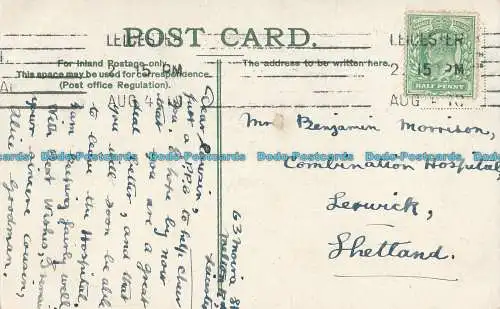 POST CARD.
For Inland Postage only.
This space may be used for correspondence.
(Post office Regulation).
The address to be written here.
LEICESTER
2. 15 PM
AUG 4
LEICESTER
2. 15 PM
AUG 4
HALF PENNY
Mr Benjamin Morrison,
Combination Hospital
Lerwick,
Shetland.
63 Moira St
Leicester
Dear Cousin,
Just a PPC to help cheer
you. I hope by now
that you are a great
deal better, and that
you will soon be able
to leave the Hospital.
Am keeping fairly well
With best Wishes, I remain
your sincere cousin,
Alice Goodman.